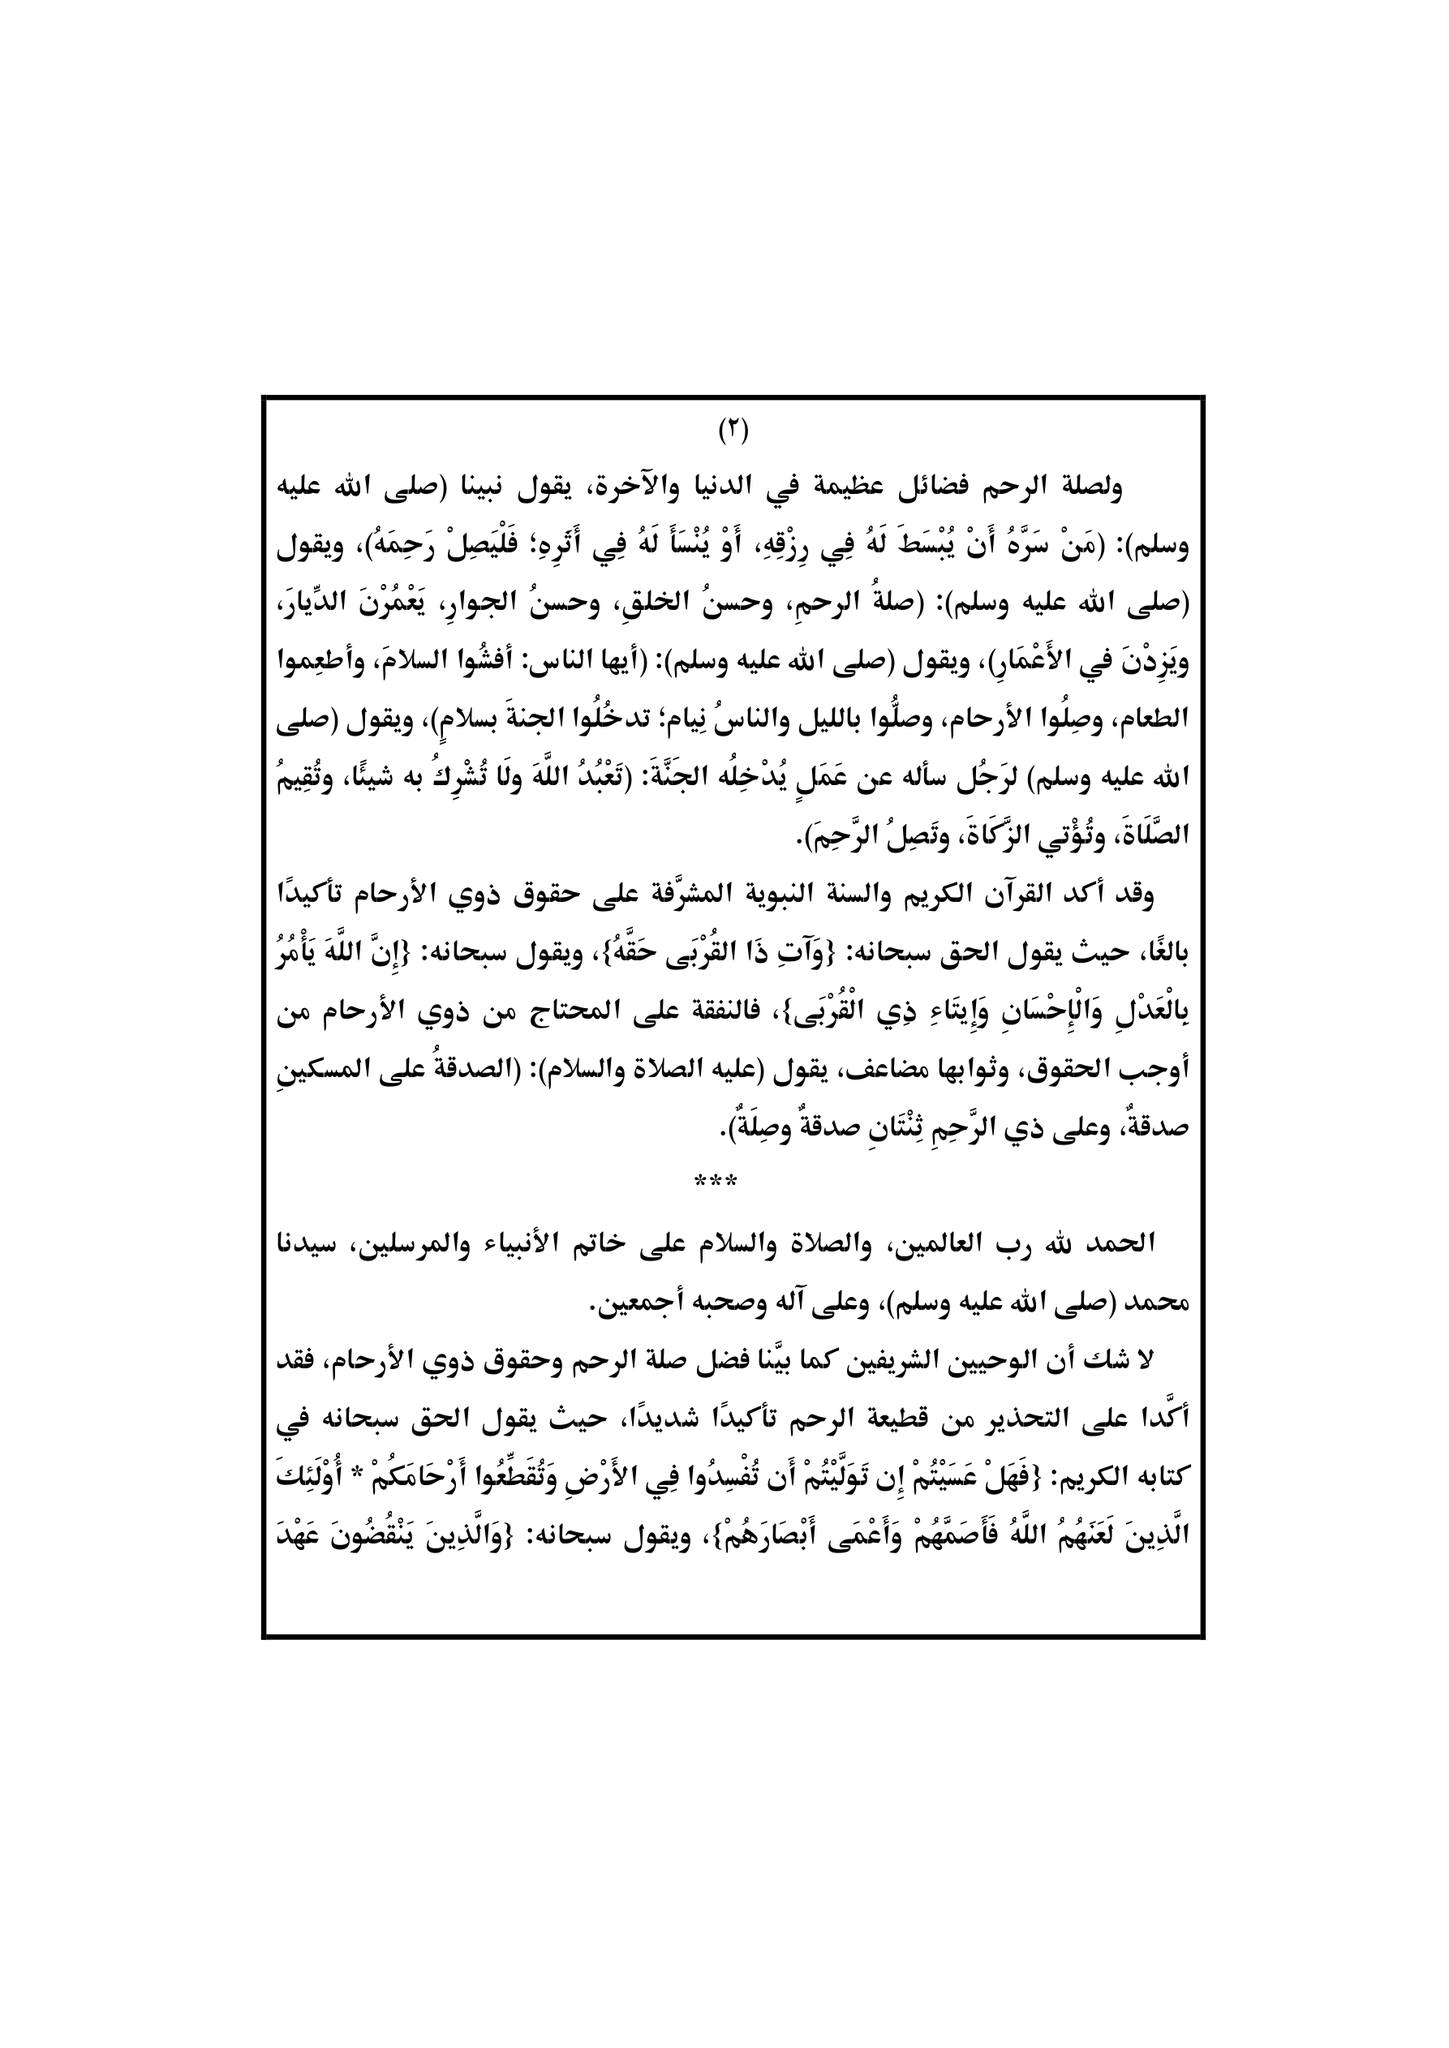 (٢)
ولصلة الرحم فضائل عظيمة في الدنيا والآخرة، يقول نبينا (صلى الله عليه
وسلم): (مَنْ سَرَّهُ أَنْ يُبْسَطَ لَهُ فِي رِزْقِهِ، أَوْ يُنْسَأَ لَهُ فِي أَثَرِهِ؛ فَلْيَصِلْ رَحِمَهُ)، ويقول
(صلى الله عليه وسلم): (صلةُ الرحمِ، وحسنُ الخلقِ، وحسنُ الجوارِ، يَعْمُرْنَ الدِّيارَ،
ويَزِدْنَ في الأَعْمَارِ)، ويقول (صلى الله عليه وسلم): (أيها الناس: أفشُوا السلامَ، وأطعِموا
الطعام، وصِلُوا الأرحام، وصلُّوا بالليل والناسُ نِيام؛ تدخُلُوا الجنةَ بسلامٍ)، ويقول (صلى
الله عليه وسلم) لرَجُل سأله عن عَمَلٍ يُدْخِلُه الجَنَّةَ: (تَعْبُدُ اللَّهَ ولَا تُشْرِكُ به شيئًا، وتُقِيمُ
الصَّلَاةَ، وتُؤْتي الزَّكَاةَ، وتَصِلُ الرَّحِمَ).
وقد أكد القرآن الكريم والسنة النبوية المشرَّفة على حقوق ذوي الأرحام تأكيدًا
بالغًا، حيث يقول الحق سبحانه: {وَآتِ ذَا القُرْبَى حَقَّهُ}، ويقول سبحانه: {إِنَّ اللَّهَ يَأْمُرُ
بِالْعَدْلِ وَالْإِحْسَانِ وَإِيتَاءِ ذِي الْقُرْبَى}، فالنفقة على المحتاج من ذوي الأرحام من
أوجب الحقوق، وثوابها مضاعف، يقول (عليه الصلاة والسلام): (الصدقةُ على المسكينِ
صدقةٌ، وعلى ذي الرَّحِمِ ثِنْتَانِ صدقةٌ وصِلَةٌ).
***
الحمد لله رب العالمين، والصلاة والسلام على خاتم الأنبياء والمرسلين، سيدنا
محمد (صلى الله عليه وسلم)، وعلى آله وصحبه أجمعين.
لا شك أن الوحيين الشريفين كما بيَّنا فضل صلة الرحم وحقوق ذوي الأرحام، فقد
أكَّدا على التحذير من قطيعة الرحم تأكيدًا شديدًا، حيث يقول الحق سبحانه في
كتابه الكريم: {فَهَلْ عَسَيْتُمْ إِن تَوَلَّيْتُمْ أَن تُفْسِدُوا فِي الأَرْضِ وَتُقَطِّعُوا أَرْحَامَكُمْ * أُوْلَئِكَ
الَّذِينَ لَعَنَهُمُ اللَّهُ فَأَصَمَّهُمْ وَأَعْمَى أَبْصَارَهُمْ}، ويقول سبحانه: {وَالَّذِينَ يَنْقُضُونَ عَهْدَ